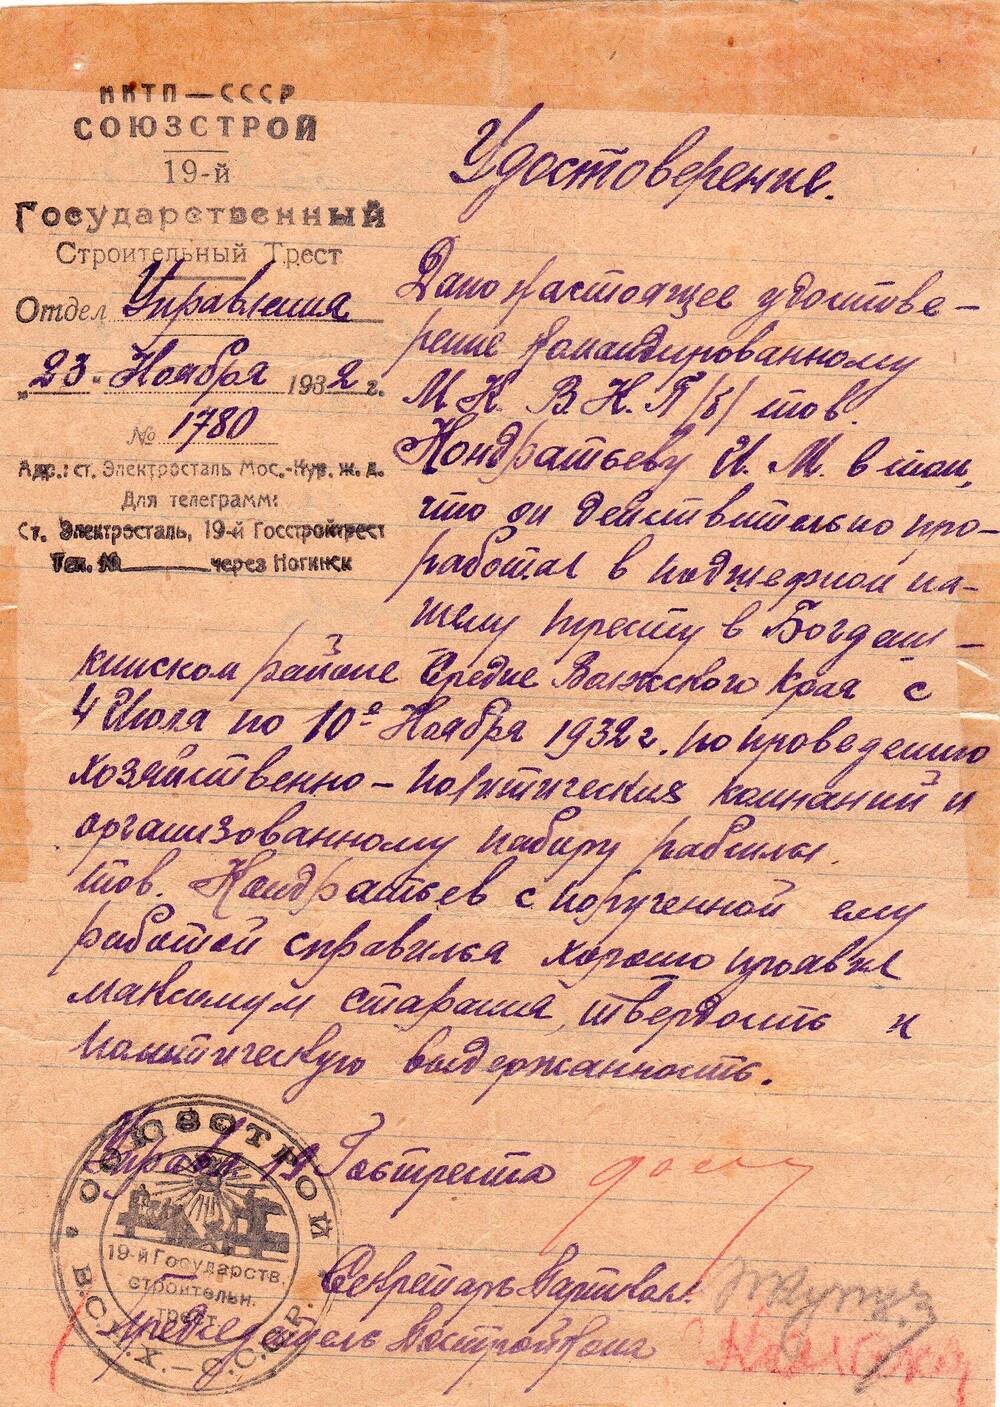 НКТП — СССР
СОЮЗСТРОЙ
19-й
Государственный
Строительный Трест
Отдел Управления
„23" Ноября 1932 г.
№ 1780
Адр.: ст. Электросталь Мос.-Кур. ж. д.
Для телеграмм:
Ст. Электросталь, 19-й Госстройтрест
Тел. № через Ногинск
Удостоверение.
Дано настоящее удостове-
рение командированному
М. К. В. К. П /б/ тов.
Кондратьеву И. М. в том,
что он действительно про-
работал в подшефном на-
шему тресту в Богдаш-
кинском районе Средне Волжского Края с
4 Июля по 10е Ноября 1932 г. по проведению
хозяйственно-политических компаний и
организованному набору рабсилы.
тов. Кондратьев с порученной ему
работой справился хорошо проявил
максимум старания, твердость и
политическую выдержанность.
Управл. 19 Гостреста
Секретарь Парткол.
Председатель Построй Кома
СОЮЗСТРОЙ
19-й Государств.
строительн.
трест
В.С.Н.Х. – С.С.С.Р.